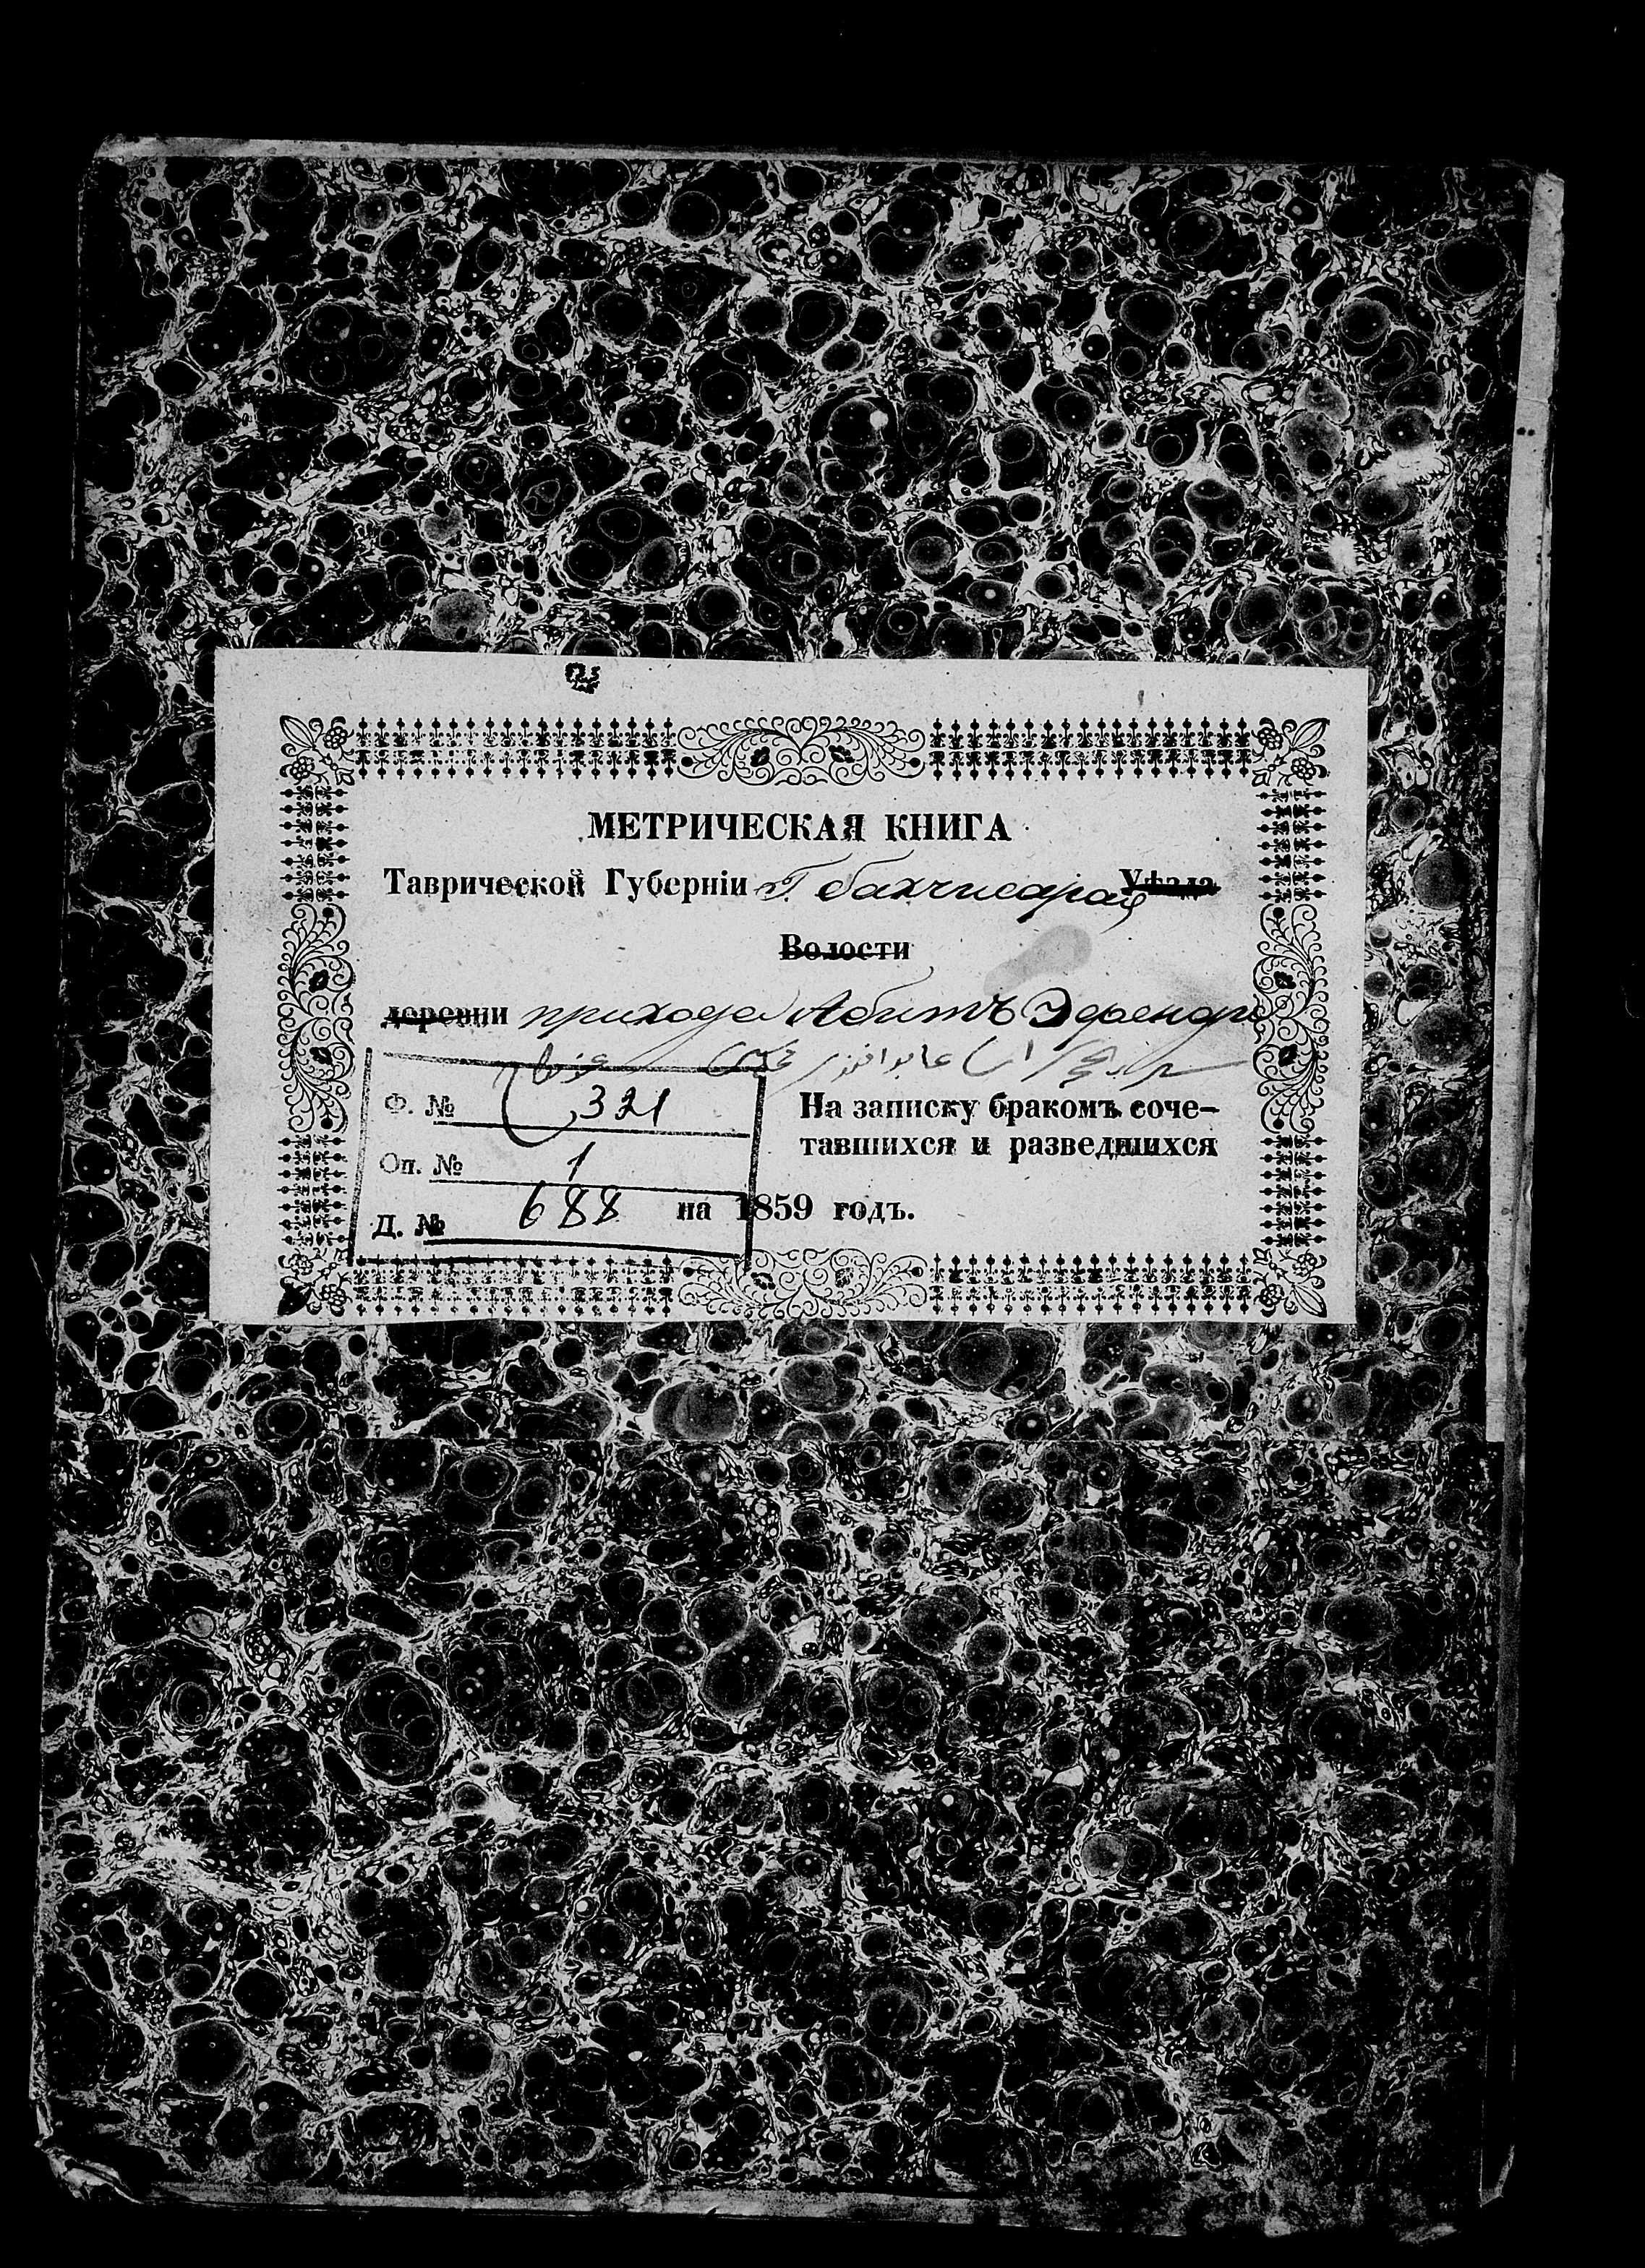 МЕТРИЧЕСКАЯ КНИГА
Таврической Губерніи Г. бахчисарая Уѣзда
Волости
деревни прихода Абитъ Эфенди
Ф. № 321
На записку бракомъ соче-
тавшихся и разведшихся
Оп. № 1
Д. № 688
на 1859 годъ.